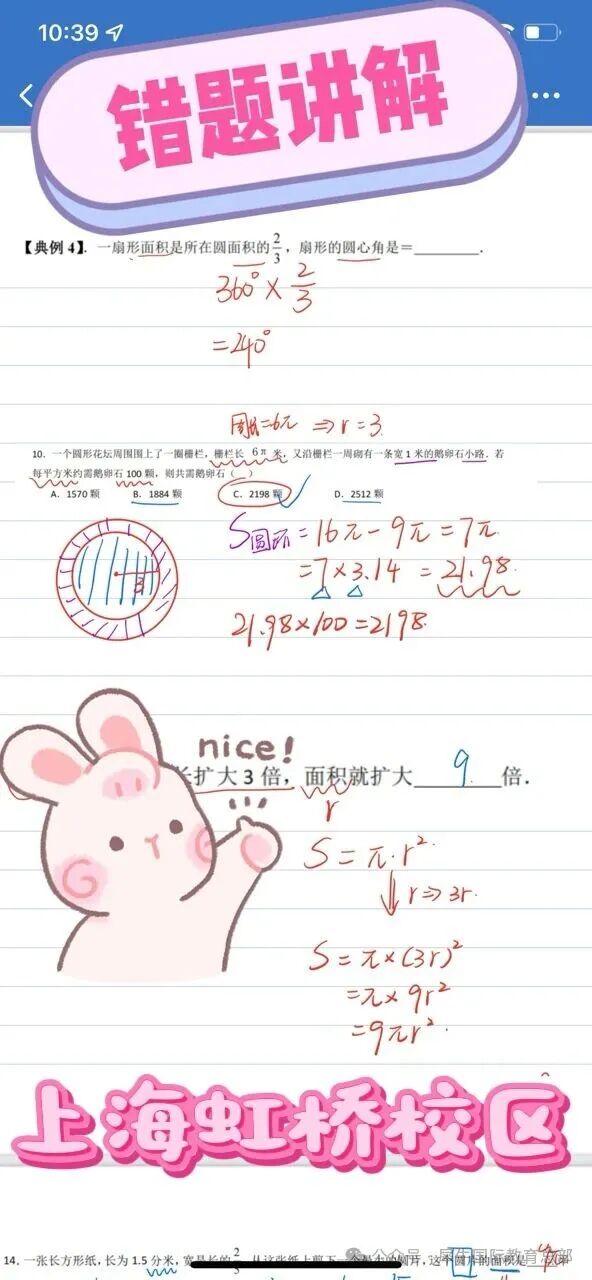 10:39
错题讲解
【典例 4】. 一扇形面积是所在圆面积的 2/3 ，扇形的圆心角是＝________.
360° × 2/3
=240°
周长=6π ⇒ r=3.
10. 一个圆形花坛周围围上了一圈栅栏，栅栏长 6π 米，又沿栅栏一周砌有一条宽 1 米的鹅卵石小路．若
每平方米约需鹅卵石 100 颗，则共需鹅卵石（ ）
A. 1570 颗 B. 1884 颗 C. 2198 颗 D. 2512 颗
S圆环 = 16π - 9π = 7π
= 7 × 3.14 = 21.98
3
21.98×100=2198.
nice!
长扩大 3 倍，面积就扩大 9 倍．
r
S = π·r²
r⇒3r.
S = π×(3r)²
=π×9r²
=9πr².
上海虹桥校区
14. 一张长方形纸，长为 1.5 分米，宽是长的
公众号 犀牛国际教育总部